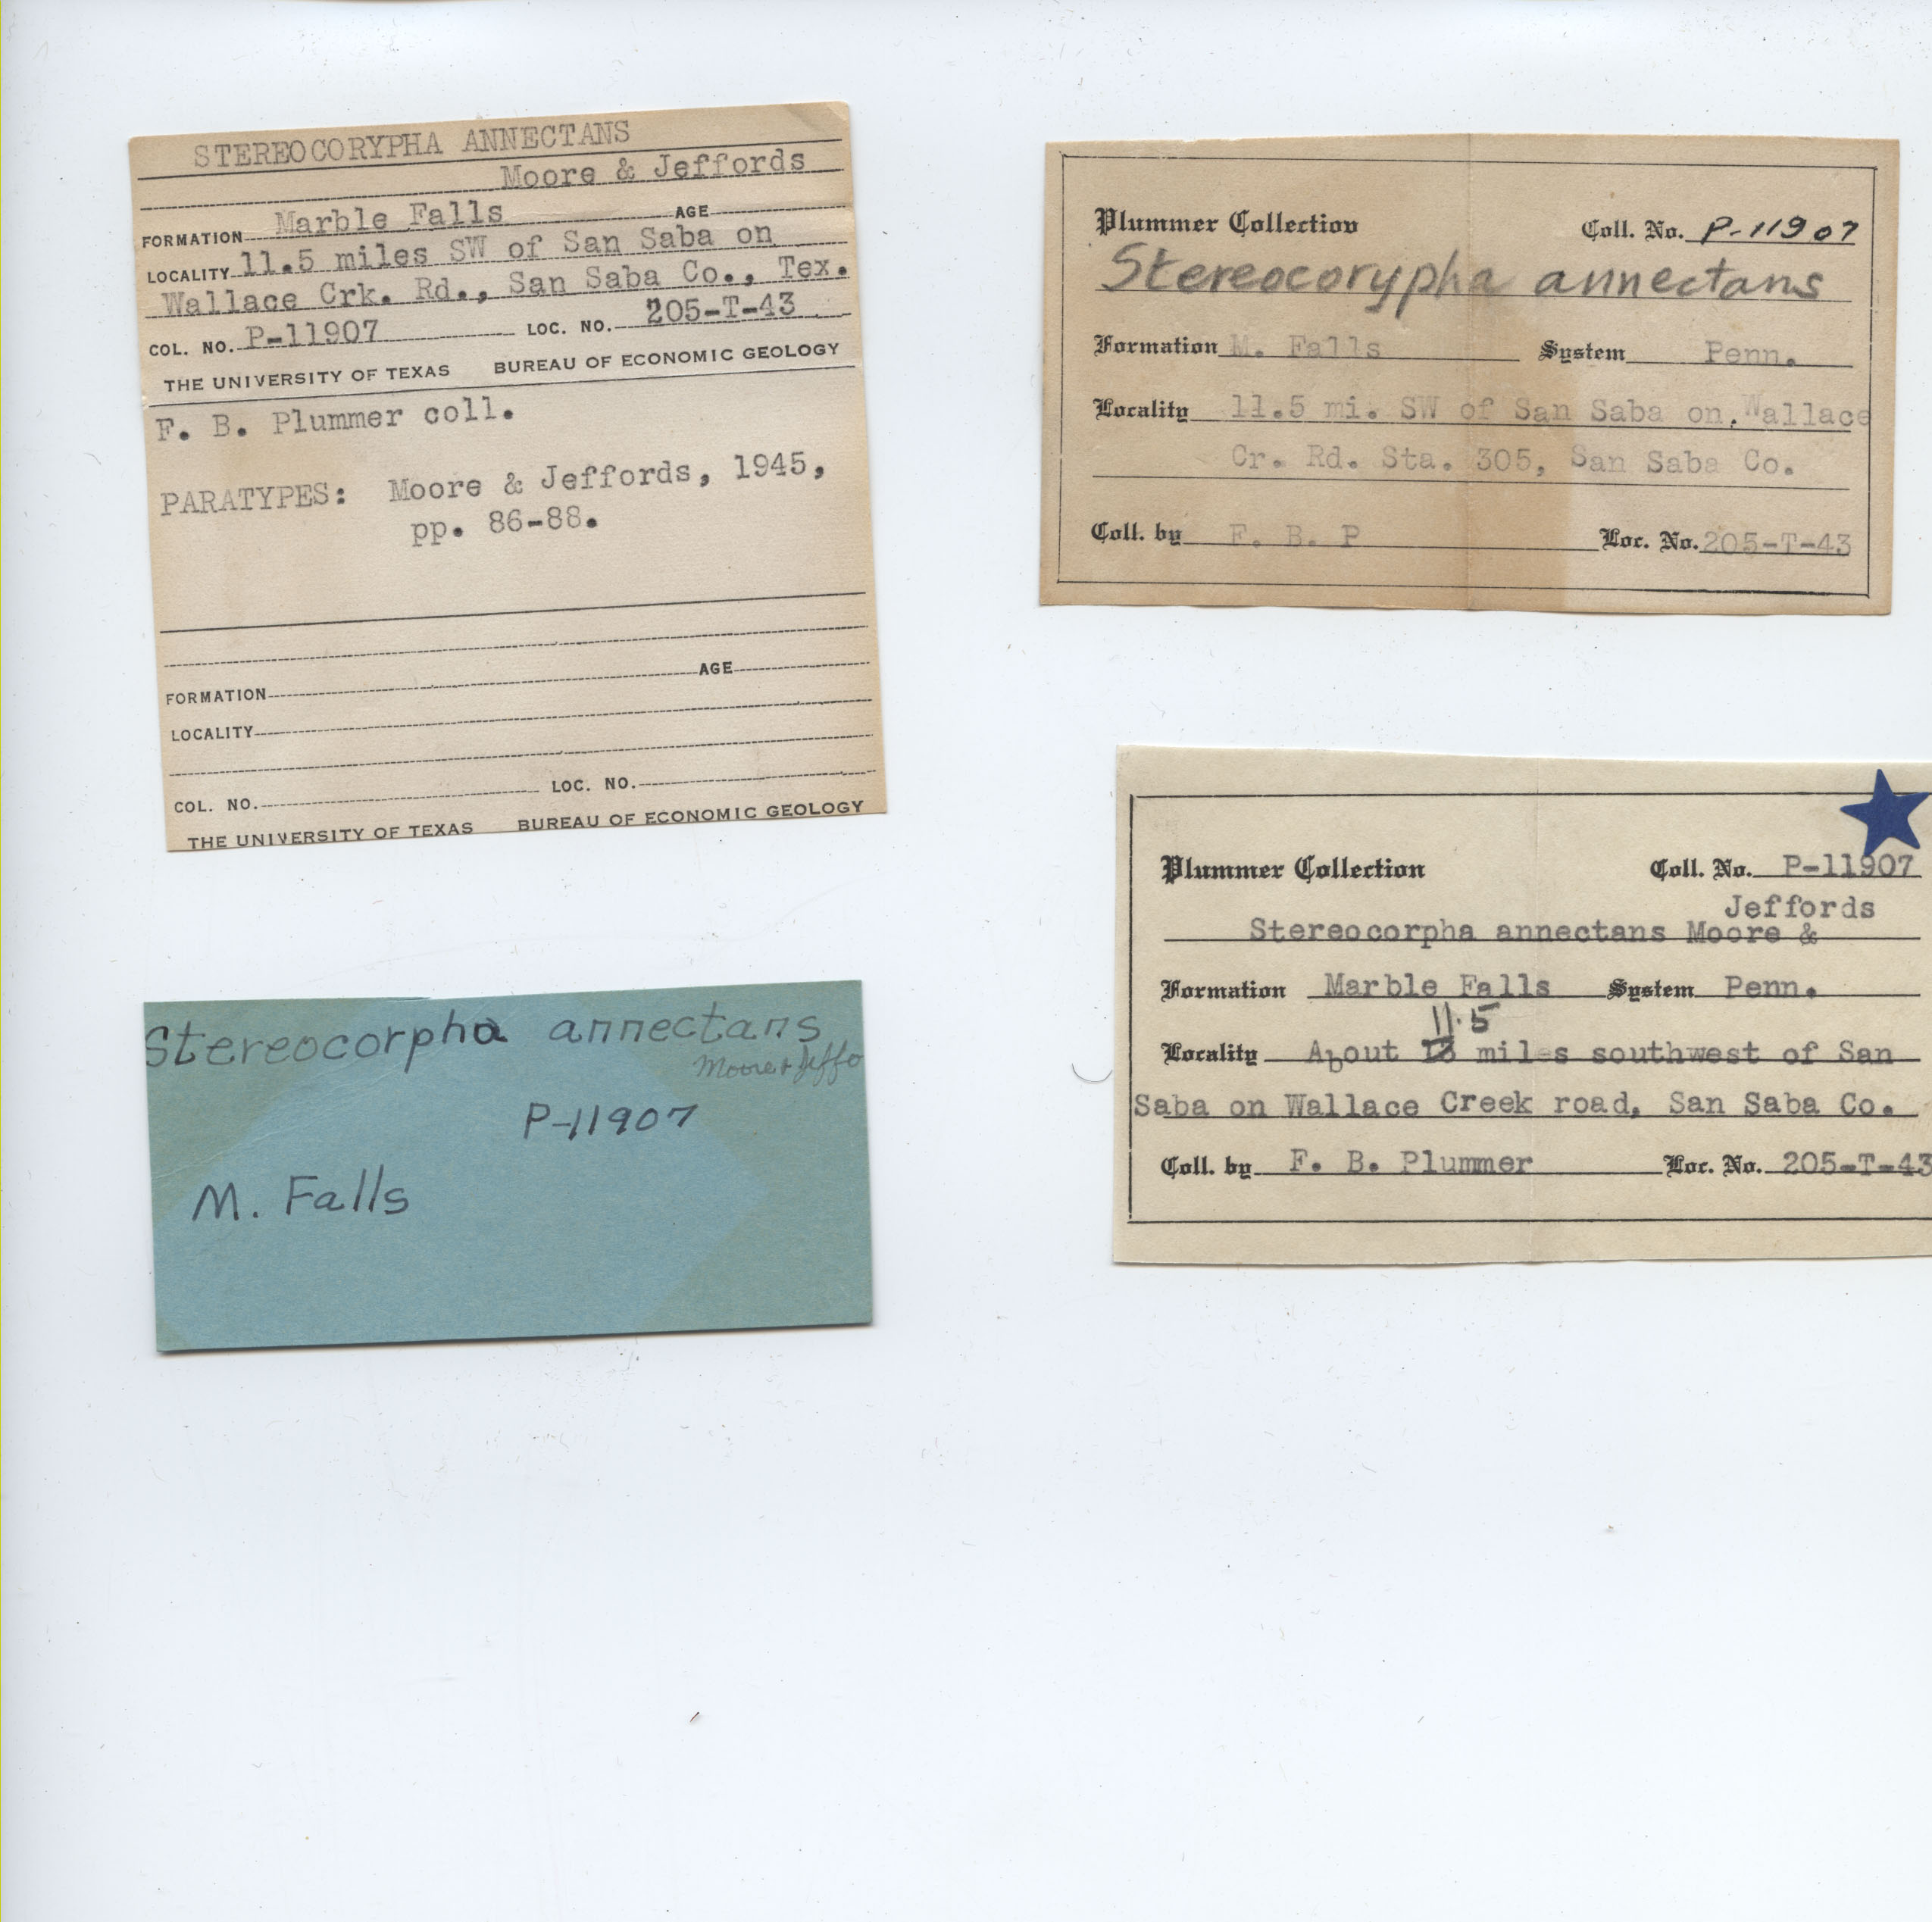 STEREOCORYPHA ANNECTANS
Moore & Jeffords
FORMATION Marble Falls AGE
LOCALITY 11.5 miles SW of San Saba on
Wallace Crk. Rd., San Saba Co., Tex.
COL. NO. P-11907 LOC. NO. 205-T-43
THE UNIVERSITY OF TEXAS BUREAU OF ECONOMIC GEOLOGY
F. B. Plummer coll.
PARATYPES: Moore & Jeffords, 1945,
pp. 86-88.
FORMATION AGE
LOCALITY
COL. NO. LOC. NO.
THE UNIVERSITY OF TEXAS BUREAU OF ECONOMIC GEOLOGY
Plummer Collection Coll. No. P-11907
Stereocorypha annectans
Formation M. Falls System Penn.
Locality 11.5 mi. SW of San Saba on Wallace
Cr. Rd. Sta. 305, San Saba Co.
Coll. by F. B. P Loc. No. 205-T-43
Plummer Collection Coll. No. P-11907
Jeffords
Stereocorpha annectans Moore &
Formation Marble Falls System Penn.
11.5
Locality About miles southwest of San
Saba on Wallace Creek road, San Saba Co.
Coll. by F. B. Plummer Loc. No. 205-T-43
Stereocorpha annectans
Moore & Jeffo
P-11907
M. Falls